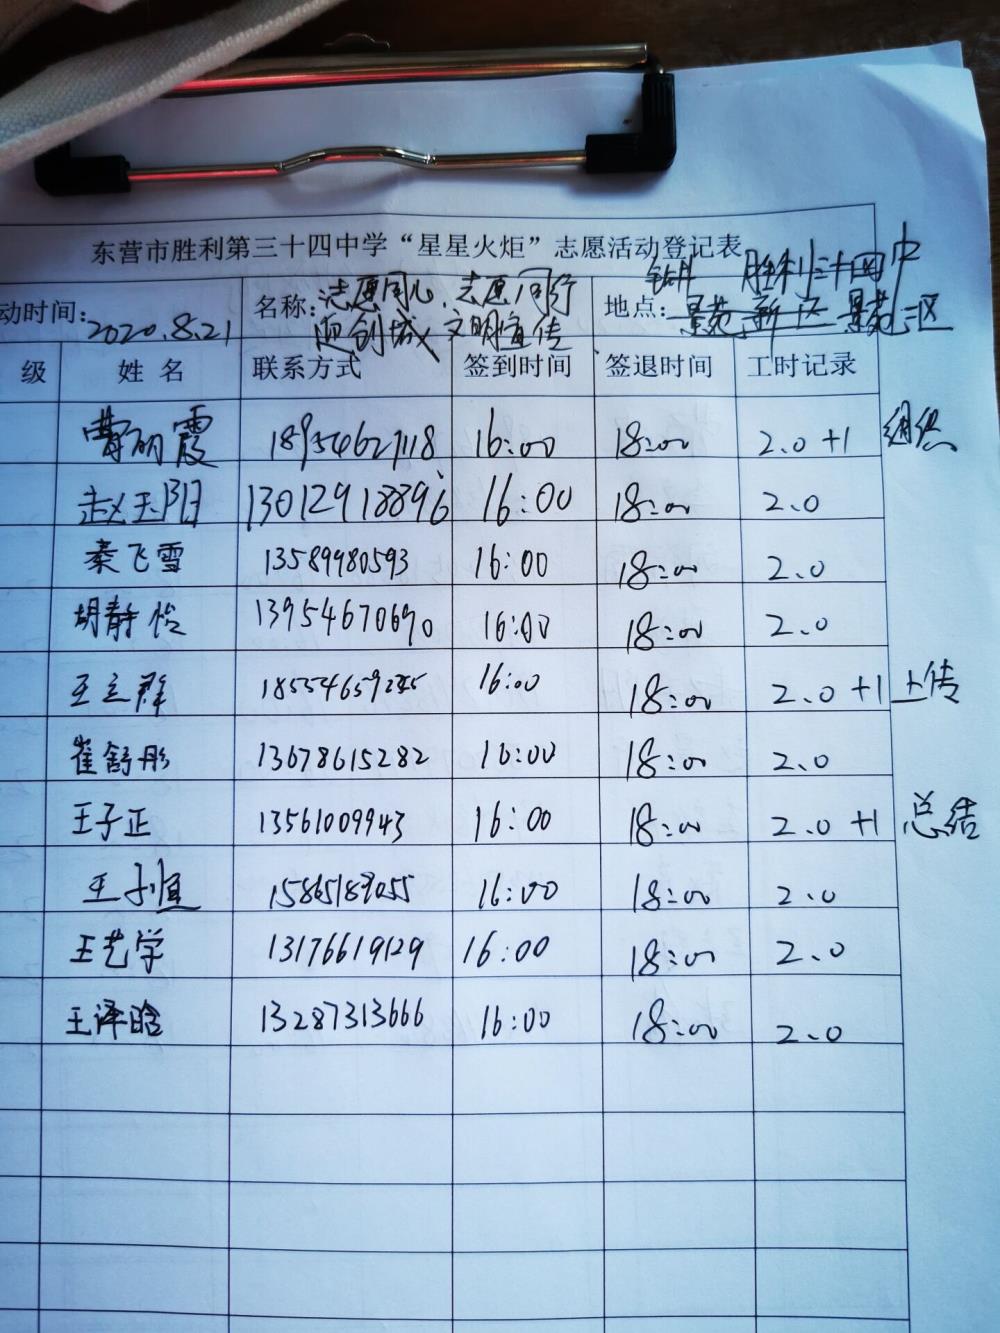 东营市胜利第三十四中学“星星火炬”志愿活动登记表
动时间: 2020.8.21 名称: 志愿同心、志愿同行 迎创城、文明宣传 地点: 钻井 胜利三十四中 景苑新区 景苑三区
级 姓名 联系方式 签到时间 签退时间 工时记录
曹丽霞 18954627118 16:00 18:00 2.0+1 组织
赵玉阳 13012918896 16:00 18:00 2.0
秦飞雪 13589980593 16:00 18:00 2.0
胡静怡 13954670690 16:00 18:00 2.0
王立群 16:00 18:00 2.0+1 上传
崔舒彤 13678615282 16:00 18:00 2.0
王子正 13561009943 16:00 18:00 2.0+1 总结
王子恒 15865189055 16:00 18:00 2.0
王艺学 13176619129 16:00 18:00 2.0
王泽晗 13287313666 16:00 18:00 2.0